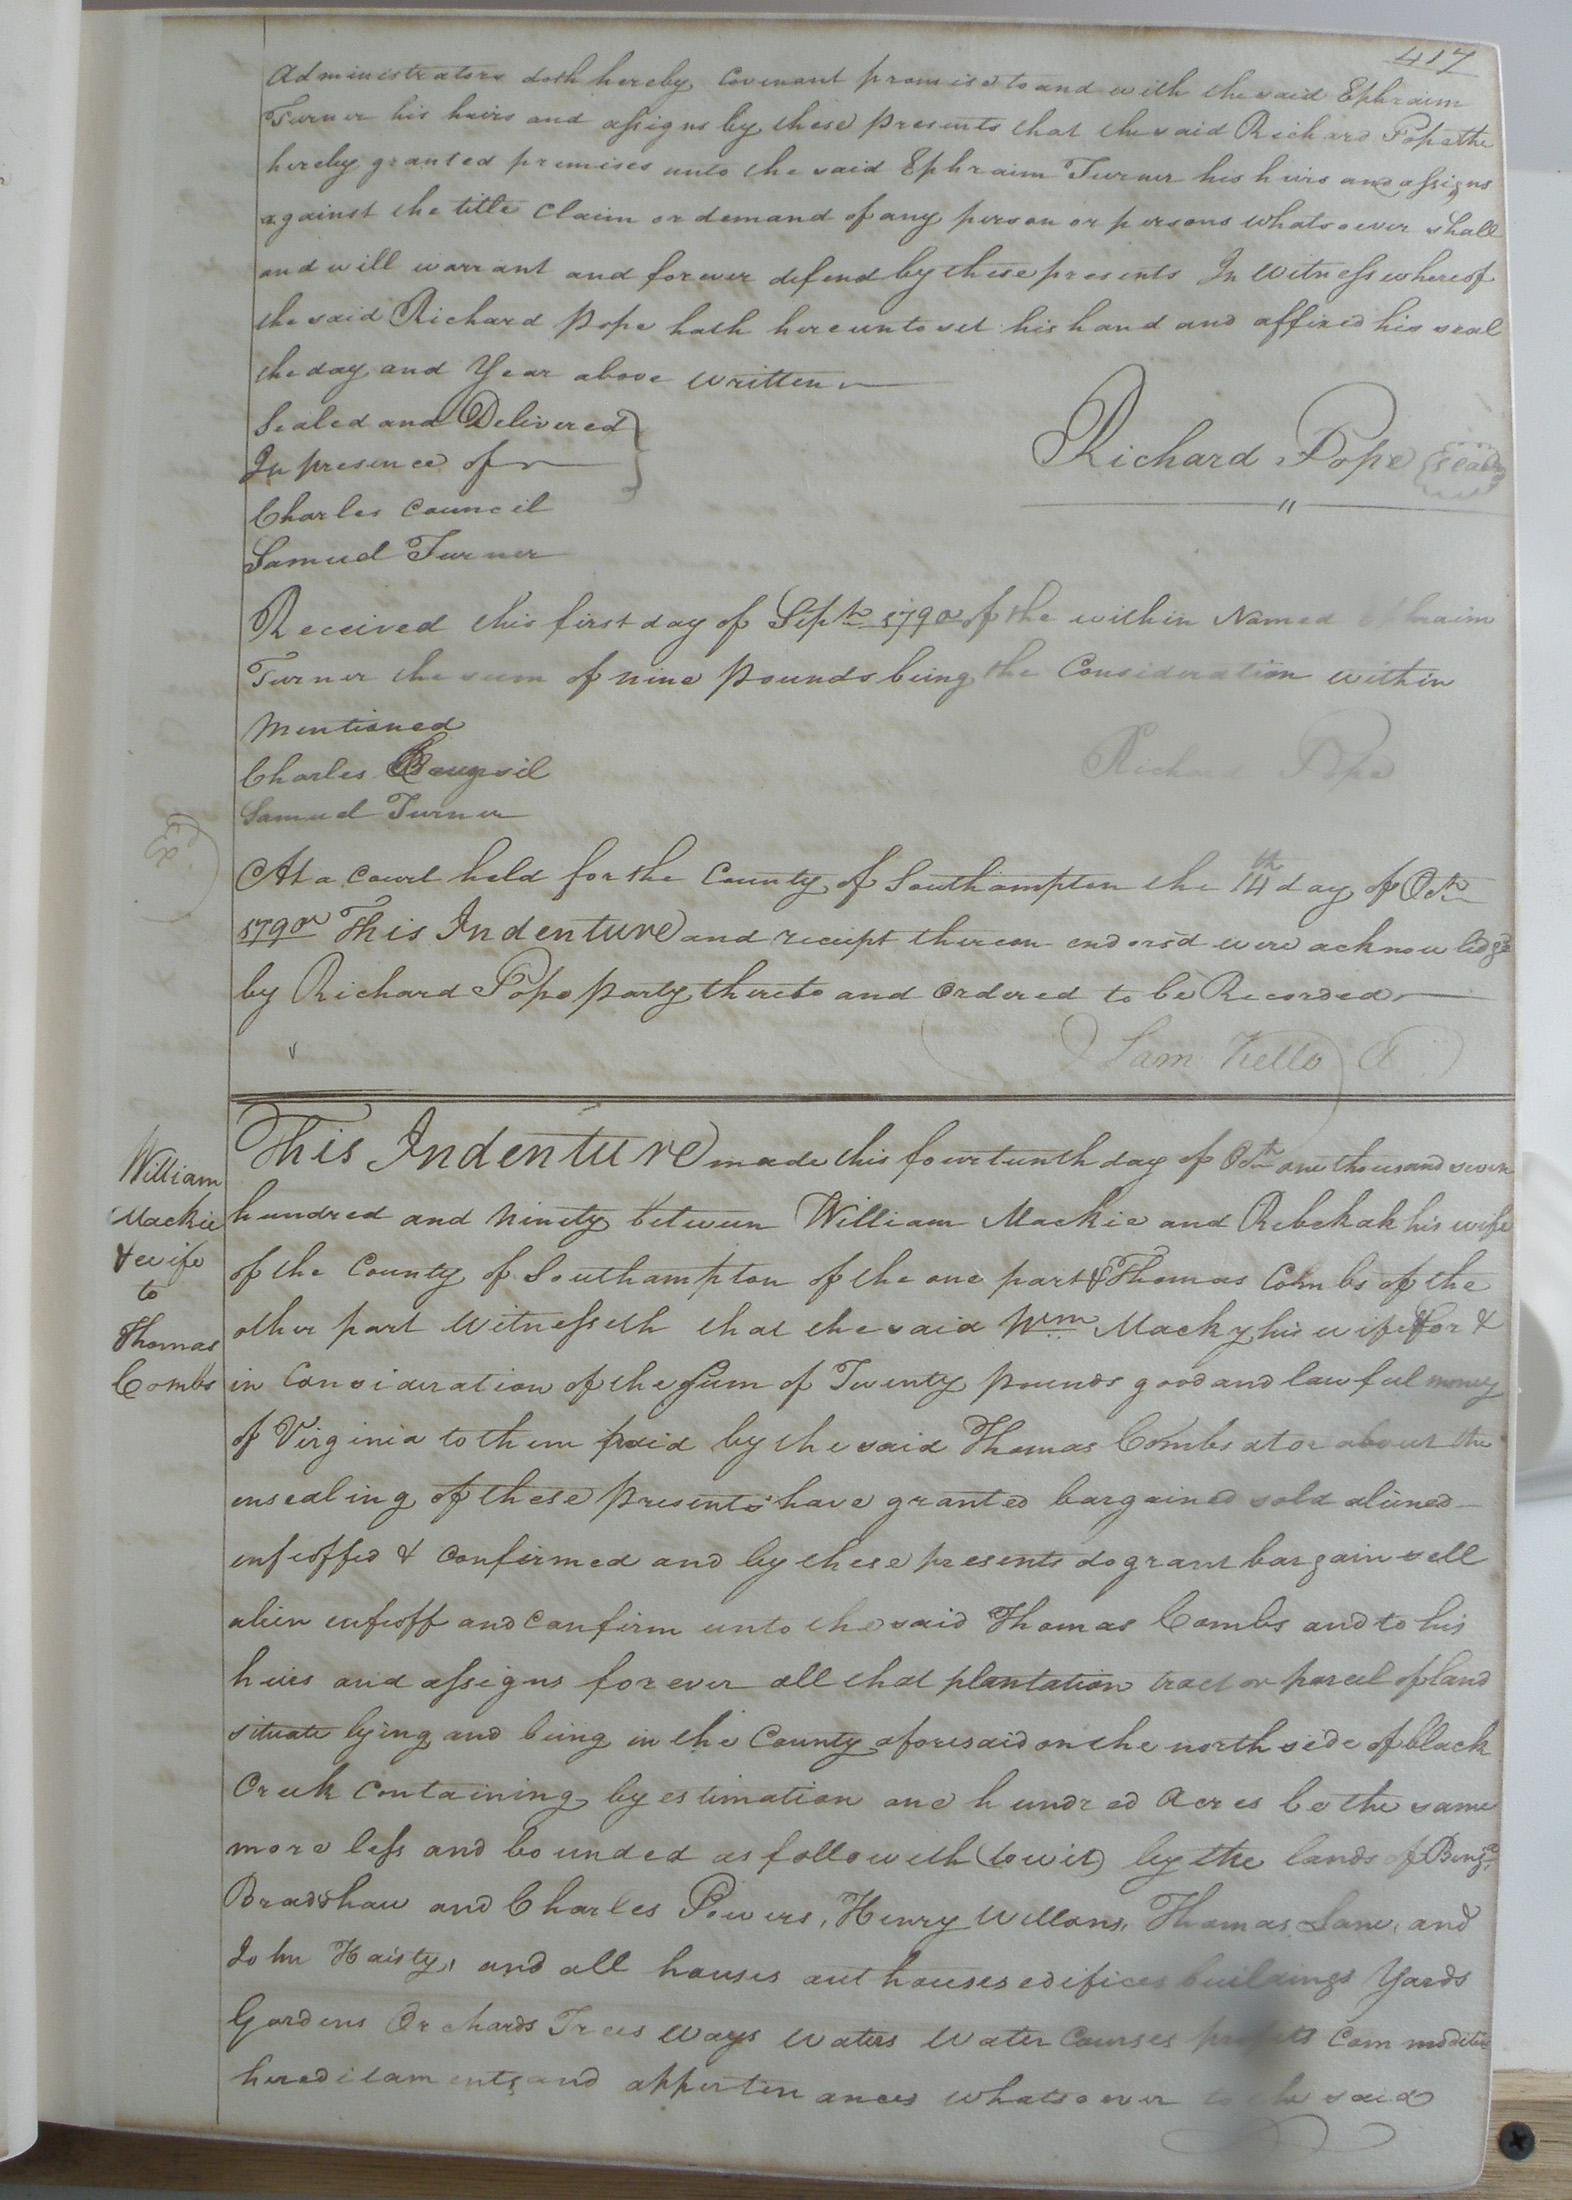 417
Administrators doth hereby Covenant promise to and with the said Ephraim
Turner his heirs and assigns by these presents that the said Richard Pope the
hereby granted premises unto the said Ephraim Turner his heirs and assigns
against the title Claim or demand of any person or persons whatsoever shall
and will warrant and forever defend by these presents In Witness whereof
the said Richard Pope hath hereunto set his hand and affixed his seal
the day and Year above written
Sealed and Delivered
In presence of
Richard Pope (seal)
Charles Council
Samuel Turner
Received this first day of Sepr 1790 of the within Named Ephraim
Turner the sum of nine pounds being the Consideration within
Mentioned
Charles Council
Richard Pope
Samuel Turner
Ex.d
At a Court held for the County of Southampton the 14th day of Octr
1790 This Indenture and receipt thereon endorsd were acknowledgd
by Richard Pope party thereto and Ordered to be Recorded
Sam Kello Cl
William
Mackie
& wife
to
Thomas
Combs
This Indenture made this fourteenth day of Octr one thousand seven
hundred and Ninety between William Mackie and Rebekah his wife
of the County of Southampton of the one part & Thomas Combs of the
other part Witnesseth that the said Wm Macky his wife for &
in Consideration of the Sum of Twenty pounds good and lawful money
of Virginia to them paid by the said Thomas Combs at or about the
ensealing of these presents have granted bargained sold aliened
enfeoffed & Confirmed and by these presents do grant bargain sell
alien enfeoff and Confirm unto the said Thomas Combs and to his
heirs and assigns forever all that plantation tract or parcel of land
situate lying and being in the County aforesaid on the north side of black
Creek Containing by estimation one hundred Acres be the same
more less and bounded as followeth (towit) by the lands of Benja
Bradshaw and Charles Powers, Henry Wellons, Thomas Lane, and
John Haisty, and all houses out houses edifices buildings Yards
Gardens Orchards Trees Ways Waters Water Courses profits Commodities
hereditaments and appertinances whatsoever to the said